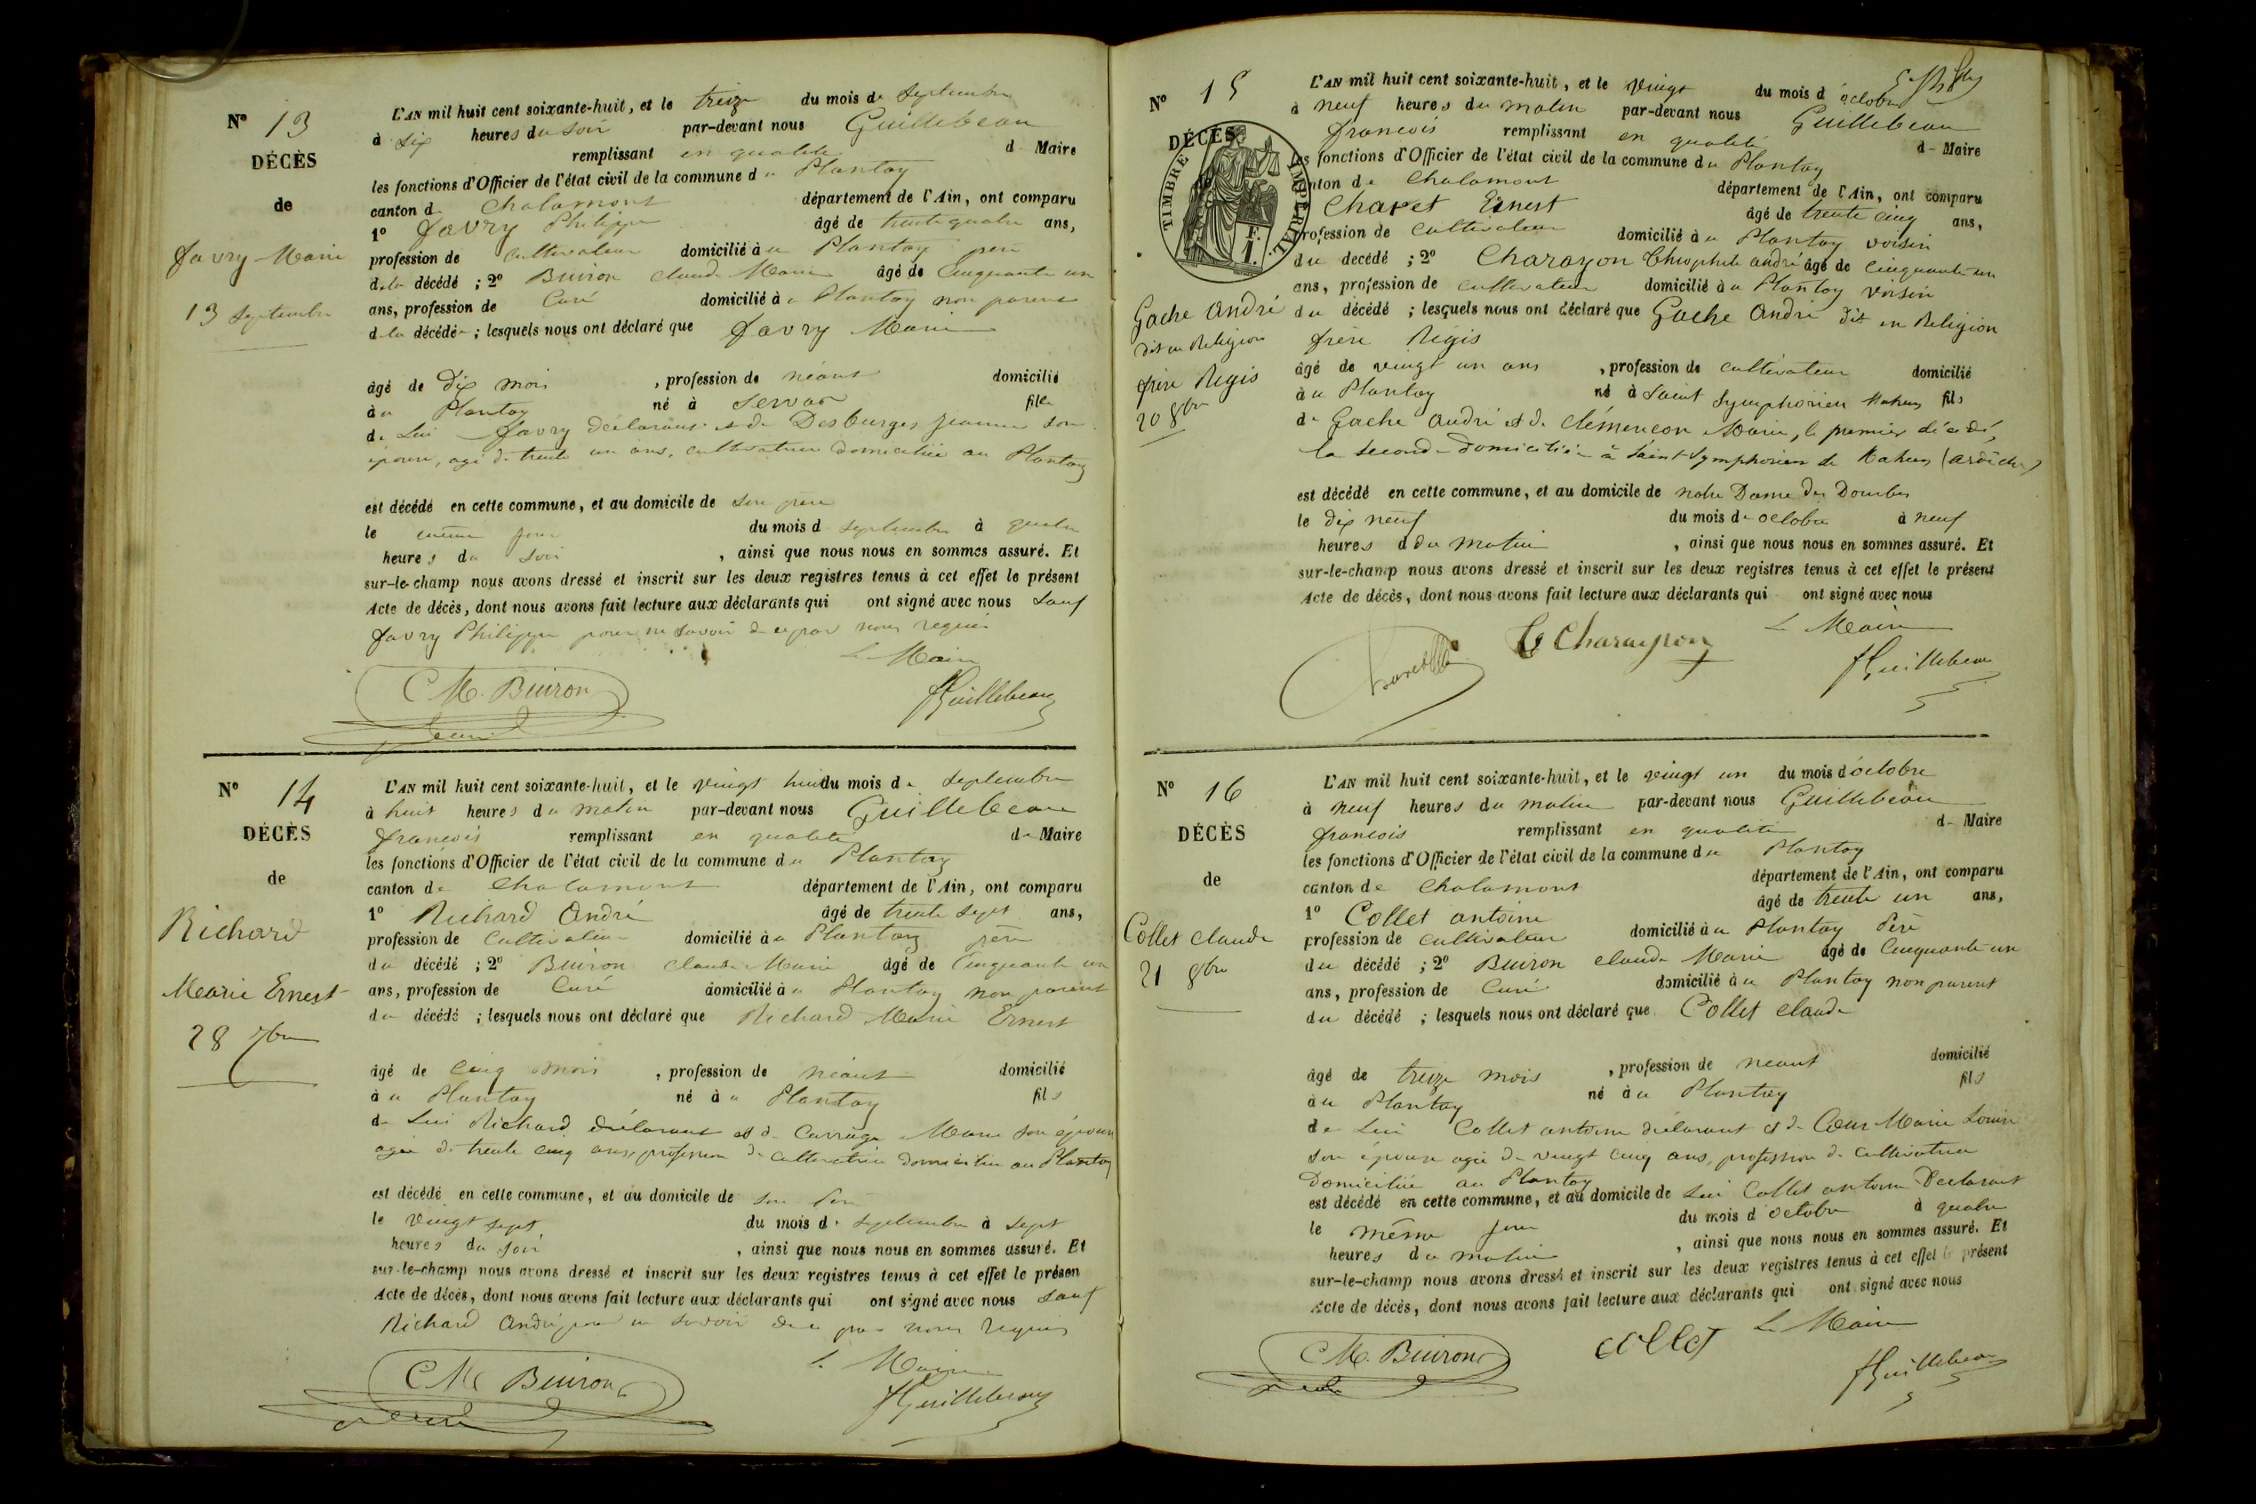 Nº 13
DÉCÈS
de
Favry Marie
13 Septembre
L'AN mil huit cent soixante-huit, et le treize du mois de Septembre
à six heures du soir par-devant nous Guillebeau
remplissant en qualité d Maire
les fonctions d'Officier de l'état civil de la commune du Plantay
canton de Chalamont département de l'Ain, ont comparu
1º Favry Philippe âgé de trente quatre ans,
profession de cultivateur domicilié à u Plantay père
de la décédé ; 2º Buiron Claude Marie âgé de Cinquante un
ans, profession de Curé domicilié à u Plantay non parent
de la décédée ; lesquels nous ont déclaré que Favry Marie
âgé de dix mois , profession de néant domicilié
à u Plantay né à Servas fille
de Lui Favry déclarant et de Desburges Jeanne son
épouse, agé de trente un ans, cultivatrice domiciliée au Plantay
est décédé en cette commune, et au domicile de son père
le même jour du mois d septembre à quatre
heures du soir , ainsi que nous nous en sommes assuré. Et
sur-le-champ nous avons dressé et inscrit sur les deux registres tenus à cet effet le présent
Acte de décès, dont nous avons fait lecture aux déclarants qui ont signé avec nous Sauf
Favry Philippe pour ne savoir de ce par nous requis
Le Maire
C M. Buiron
fGuillebeau
Nº 14
DÉCÈS
de
Richard
Marie Ernest
28 7bre
L'AN mil huit cent soixante-huit, et le vingt huit du mois de Septembre
à huit heures du matin par-devant nous Guillebeau
francois remplissant en qualité de Maire
les fonctions d'Officier de l'état civil de la commune du Plantay
canton de Chalamont département de l'Ain, ont comparu
1º Richard André âgé de trente sept ans,
profession de Cultivateur domicilié à u Plantay père
du décédé ; 2º Buiron Claude Marie âgé de Cinquante un
ans, profession de Curé domicilié à u Plantay non parent
du décédé ; lesquels nous ont déclaré que Richard Marie Ernest
âgé de Cinq mois , profession de néant domicilié
à u Plantay né à u Plantay fils
de Lui Richard déclarant et de Carruge Marie son épouse
agée de trente cinq ans, profession de cultivatrice domiciliée au Plantay
est décédé en cette commune, et au domicile de son Père
le vingt sept du mois de septembre à sept
heures du soir , ainsi que nous nous en sommes assuré. Et
sur-le-champ nous avons dressé et inscrit sur les deux registres tenus à cet effet le présen
Acte de décès, dont nous avons fait lecture aux déclarants qui ont signé avec nous Sauf
Richard André pour ne savoir de ce par nous requis
Le Maire
C M Buiron
fGuillebeau
Nº 15
DÉCÈS
TIMBRE IMPÉRIAL
Gache André
dit en Religion
frère Regis
20 8bre
L'AN mil huit cent soixante-huit, et le vingt du mois d'octobre
à neuf heures du matin par-devant nous Guillebeau
francois remplissant en qualité de Maire
les fonctions d'Officier de l'état civil de la commune du Plantay
canton de Chalamont département de l'Ain, ont comparu
Charet Ernest âgé de trente cinq ans,
profession de Cultivateur domicilié à u Plantay voisin
du decédé ; 2º Charayon Théophile andré âgé de Cinquante un
ans, profession de cultivateur domicilié à u Plantay voisin
du décédé ; lesquels nous ont déclaré que Gache André dit en Religion
frère Régis
âgé de vingt un ans , profession de cultivateur domicilié
à u Plantay né à Saint Symphorien Mahun fils
de Gache André et de Clémencon Marie, le premier décédé,
la seconde domiciliée à Saint Symphorien de Mahun (ardèche)
est décédé en cette commune, et au domicile de notre Dame des Dombes
le dix neuf du mois de octobre à neuf
heures d du matin , ainsi que nous nous en sommes assuré. Et
sur-le-champ nous avons dressé et inscrit sur les deux registres tenus à cet effet le présent
Acte de décès, dont nous avons fait lecture aux déclarants qui ont signé avec nous
Le Maire
Charayon
fGuillebeau
Nº 16
DÉCÈS
de
Collet Claude
21 8bre
L'AN mil huit cent soixante-huit, et le vingt un du mois d'octobre
à neuf heures du matin par-devant nous Guillebeau
francois remplissant en qualité de Maire
les fonctions d'Officier de l'état civil de la commune du Plantay
canton de Chalamont département de l'Ain, ont comparu
1º Collet antoine âgé de trente un ans,
profession de cultivateur domicilié à u Plantay Père
du décédé ; 2º Buiron claude Marie âgé de Cinquante un
ans, profession de Curé domicilié à u Plantay non parent
du décédé ; lesquels nous ont déclaré que Collet claude
âgé de treize mois , profession de neant domicilié
à u Plantay né à u Plantay fils
de Lui Collet antoine déclarant et de Cœur Marie Louise
son épouse agée de vingt cinq ans, profession de Cultivatrice
Domiciliée au Plantay
est décédé en cette commune, et au domicile de Lui Collet antoine Déclarant
le même jour du mois d'octobre à quatre
heures du matin , ainsi que nous nous en sommes assuré. Et
sur-le-champ nous avons dressé et inscrit sur les deux registres tenus à cet effet le présent
Acte de décès, dont nous avons fait lecture aux déclarants qui ont signé avec nous
Le Maire
C M. Buiron
collet
fGuillebeau